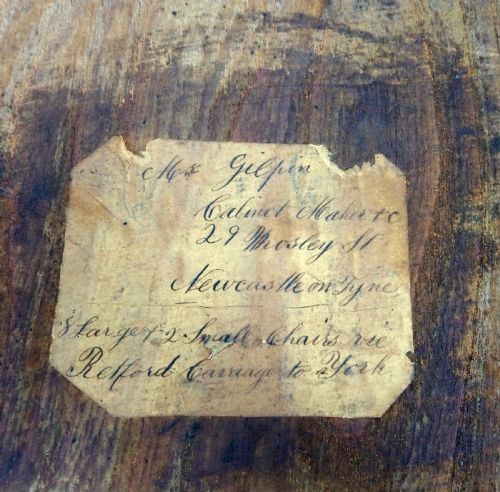 Mr Gilpin
Cabinet Maker &c
29 Mosley St
Newcastle on Tyne
8 Large & 2 Small Chairs vie
Retford Carriage to York